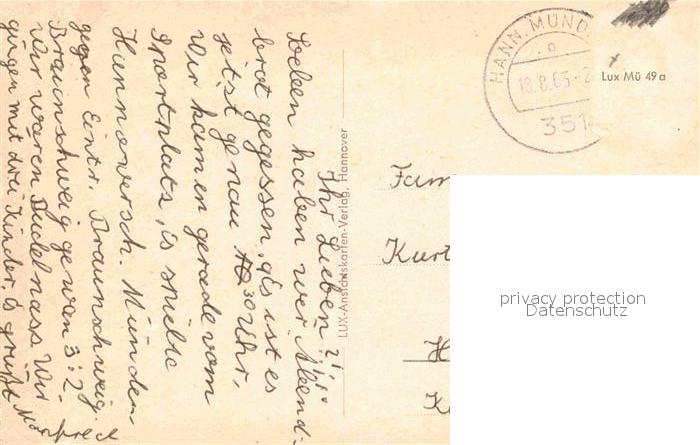 Ihr Lieben!
Soeben haben wir Abend-
brot gegessen, es ist es
jetzt genau 30 Uhr.
Wir kamen gerade vom
Sportplatz, es spielte
Hannoversch. Münden
gegen Eintr. Braunschweig.
Braunschweig gewan 3:2.
Wir waren Pudelnass. Wir
gingen mit drei Kinder. Es grüßt Manfred
LUX-Ansichtskarten-Verlag, Hannover
HANN. MÜND
18.8.63-2
351
Lux Mü 49a
Fam
Kurt
H
K
privacy protection
Datenschutz